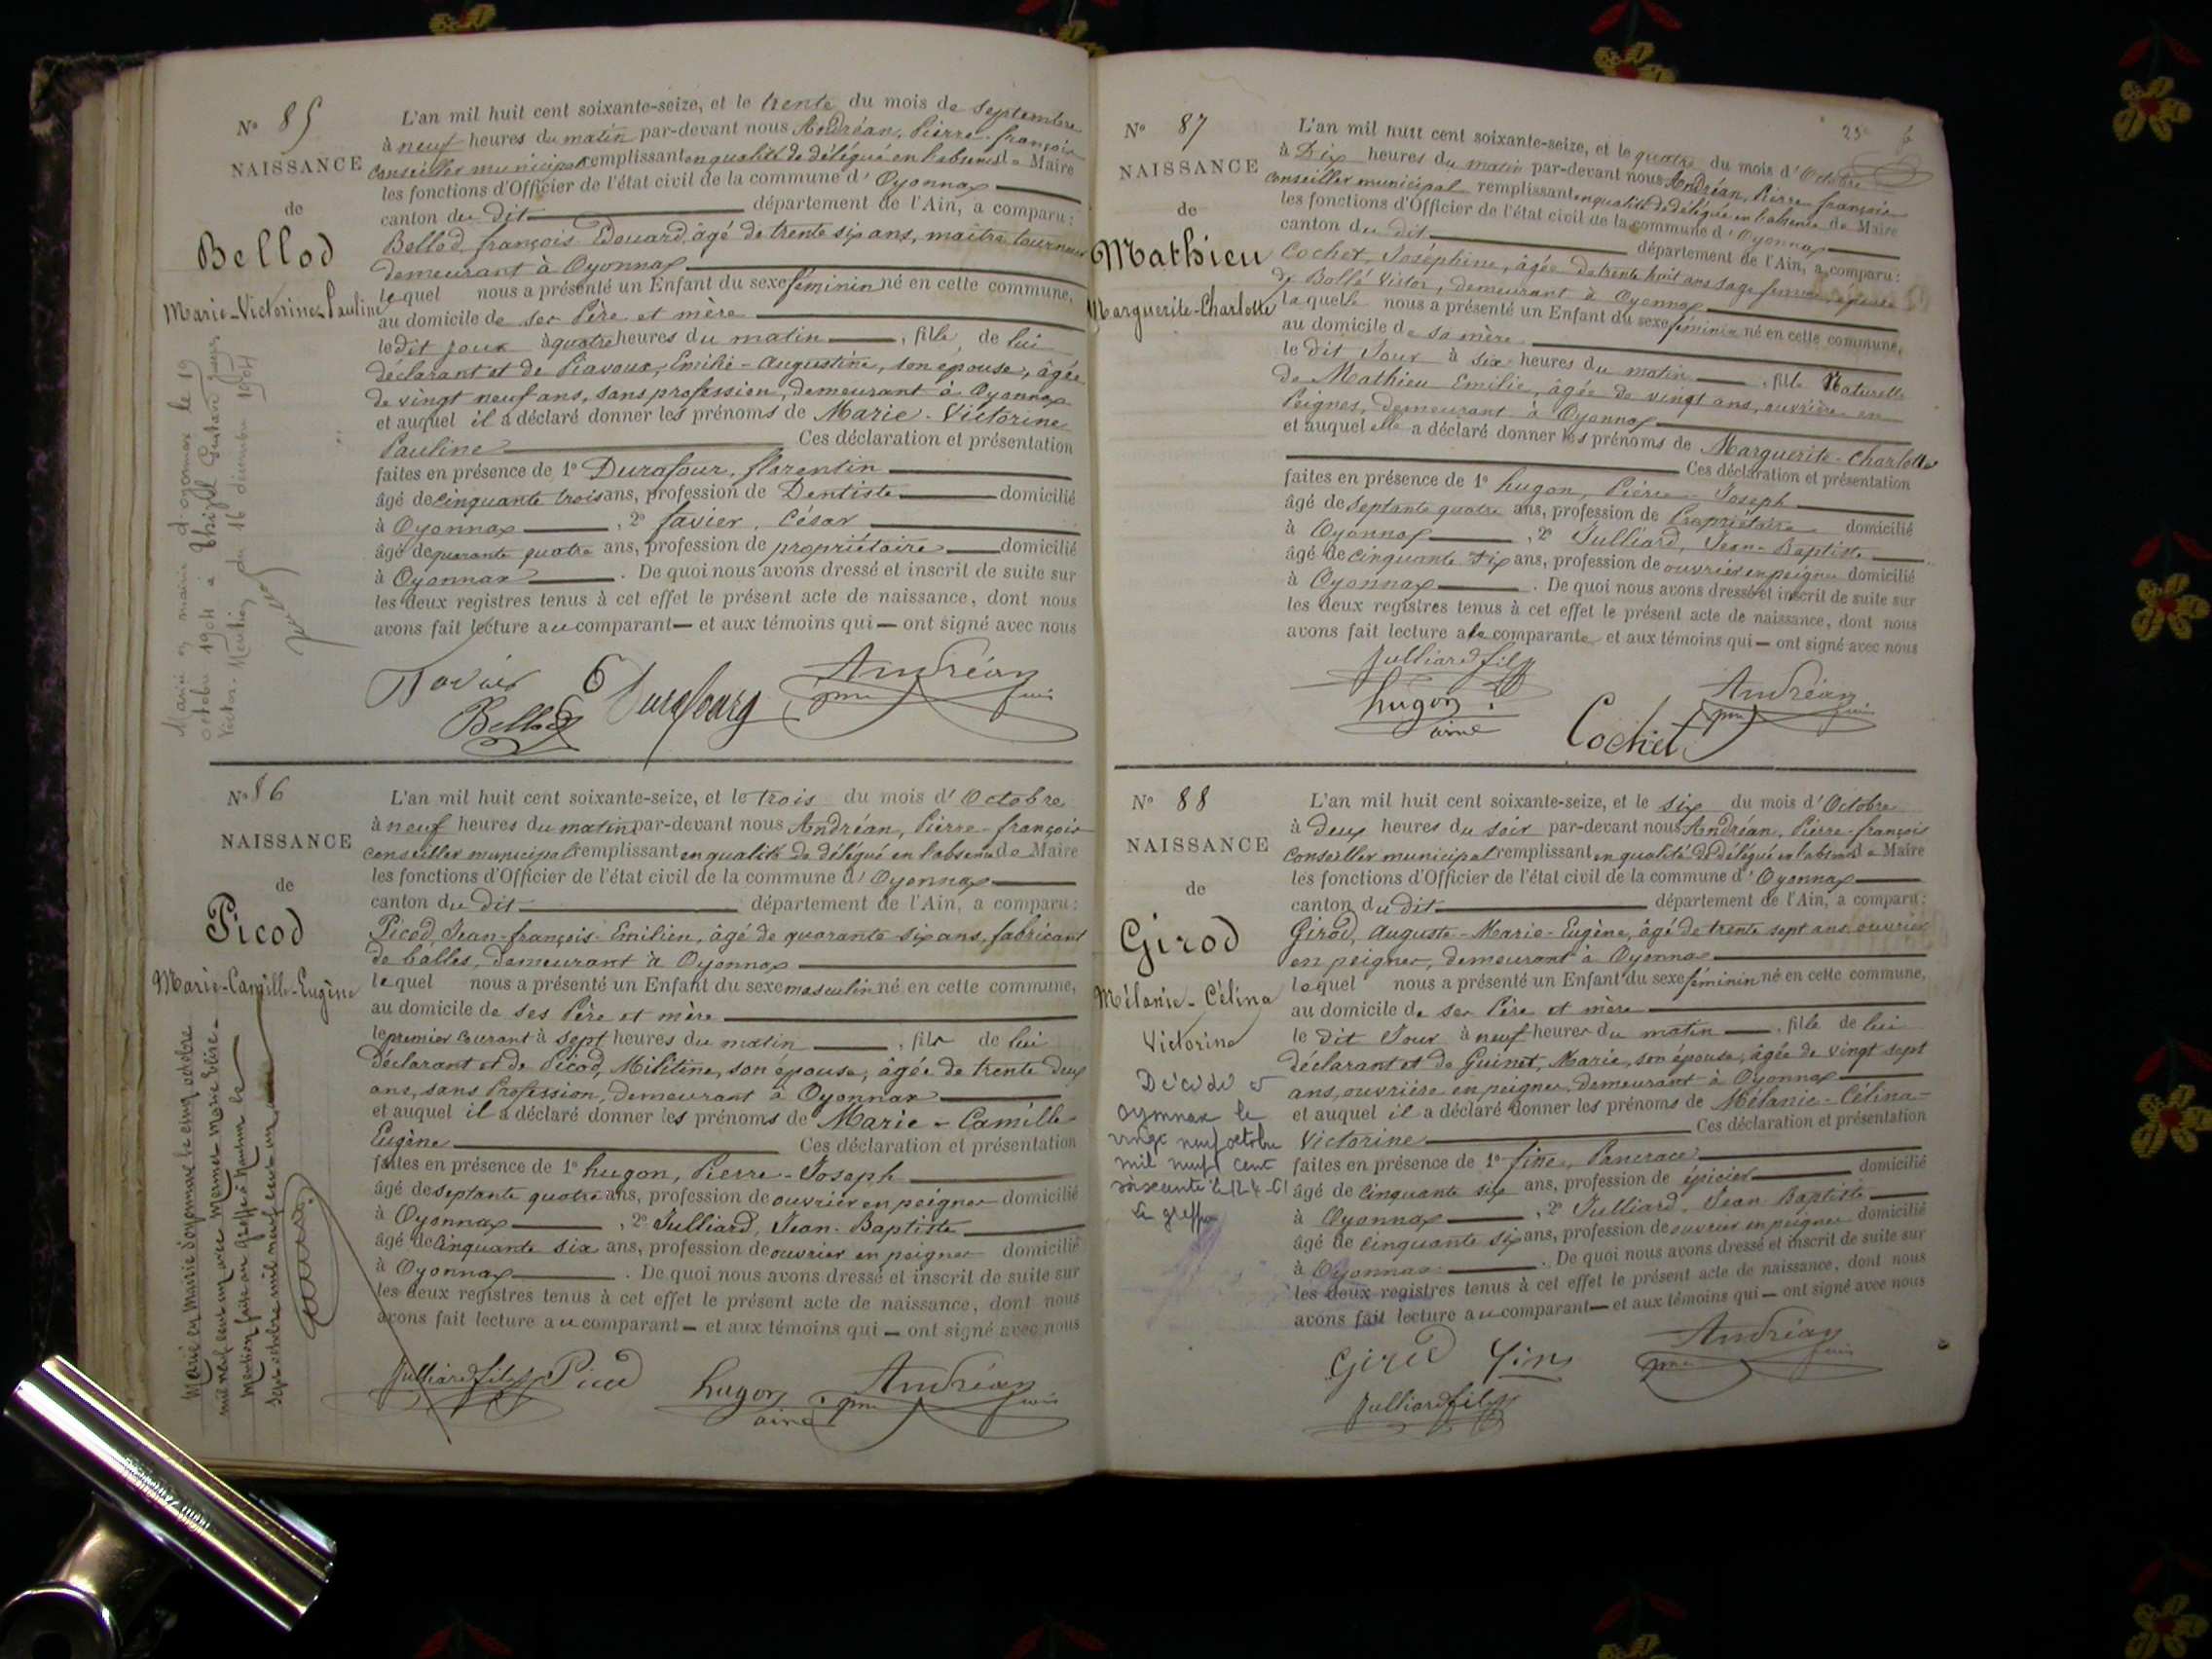 N° 85
NAISSANCE
de
Bellod
Marie-Victorine-Pauline
Marié en mairie d'oyonnax le 19
octobre 1904 à
Mention du 16 décembre 1904
L'an mil huit cent soixante-seize, et le trente du mois de septembre
à neuf heures du matin par-devant nous Andréan, Pierre-françois
conseiller municipal remplissant en qualité de délégué en l'absence de Maire
les fonctions d'Officier de l'état civil de la commune d' Oyonnax
canton du dit département de l'Ain, a comparu :
Bellod, françois Edouard, âgé de trente six ans, maître tourneur
demeurant à Oyonnax
lequel nous a présenté un Enfant du sexe féminin né en cette commune,
au domicile de ses Père et mère
le dit jour à quatre heures du matin , fille de lui
déclarant et de Piavoux, Emilie-Augustine, son épouse, âgée
de vingt neuf ans, sans profession, demeurant à Oyonnax
et auquel il a déclaré donner les prénoms de Marie-Victorine
Pauline Ces déclaration et présentation
faites en présence de 1° Durafour, florentin
âgé de cinquante trois ans, profession de Dentiste domicilié
à Oyonnax , 2° favier, César
âgé de quarante quatre ans, profession de propriétaire domicilié
à Oyonnax . De quoi nous avons dressé et inscrit de suite sur
les deux registres tenus à cet effet le présent acte de naissance, dont nous
avons fait lecture au comparant et aux témoins qui ont signé avec nous
Bellod Andréan
N° 86
NAISSANCE
de
Picod
Marie-Camille-Eugène
Marié en Mairie d'oyonnax le cinq octobre
mil neuf cent un avec Mermet Marie Elise
Mention faite au greffe à Nantua le
sept octobre mil neuf cent un
L'an mil huit cent soixante-seize, et le trois du mois d' Octobre
à neuf heures du matin par-devant nous Andréan, Pierre-françois
conseiller municipal remplissant en qualité de délégué en l'absence de Maire
les fonctions d'Officier de l'état civil de la commune d' Oyonnax
canton du dit département de l'Ain, a comparu :
Picod, Jean-françois-Emilien, âgé de quarante six ans, fabricant
de balles, demeurant à Oyonnax
lequel nous a présenté un Enfant du sexe masculin né en cette commune,
au domicile de ses Père et mère
le premier courant à sept heures du matin , fils de lui
déclarant et de Picod, Militine, son épouse, âgée de trente deux
ans, sans Profession, demeurant à Oyonnax
et auquel il a déclaré donner les prénoms de Marie-Camille
Eugène Ces déclaration et présentation
faites en présence de 1° hugon, Pierre-Joseph
âgé de septante quatre ans, profession de ouvrier en peignes domicilié
à Oyonnax , 2° Julliard, Jean-Baptiste
âgé de cinquante six ans, profession de ouvrier en peignes domicilié
à Oyonnax . De quoi nous avons dressé et inscrit de suite sur
les deux registres tenus à cet effet le présent acte de naissance, dont nous
avons fait lecture au comparant et aux témoins qui ont signé avec nous
Julliard fils Picod hugon aîné Andréan
23
N° 87
NAISSANCE
de
Mathieu
Marguerite-Charlotte
L'an mil huit cent soixante-seize, et le quatre du mois d'Octobre
à Dix heures du matin par-devant nous Andréan, Pierre françois
conseiller municipal remplissant en qualité de délégué en l'absence de Maire
les fonctions d'Officier de l'état civil de la commune d' Oyonnax
canton du dit département de l'Ain, a comparu :
Cochet, Joséphine, âgée de trente huit ans sage femme, épouse
de Bollé Victor, demeurant à Oyonnax
laquelle nous a présenté un Enfant du sexe féminin né en cette commune,
au domicile de sa mère
le dit Jour à six heures du matin , fille Naturelle
de Mathieu Emilie, âgée de vingt ans, ouvrière en
Peignes, demeurant à Oyonnax
et auquel elle a déclaré donner les prénoms de Marguerite-Charlotte
Ces déclaration et présentation
faites en présence de 1° hugon, Pierre-Joseph
âgé de septante quatre ans, profession de Propriétaire domicilié
à Oyonnax , 2° Julliard, Jean-Baptiste
âgé de cinquante six ans, profession de ouvrier en peignes domicilié
à Oyonnax . De quoi nous avons dressé et inscrit de suite sur
les deux registres tenus à cet effet le présent acte de naissance, dont nous
avons fait lecture a la comparante et aux témoins qui ont signé avec nous
Julliard fils
hugon aîné Cochet Andréan
N° 88
NAISSANCE
de
Girod
Mélanie-Célina
Victorine
Décédé à
oyonnax le
vingt neuf octobre
mil neuf cent
soixante
Le greffier
L'an mil huit cent soixante-seize, et le six du mois d'Octobre
à deux heures du soir par-devant nous Andréan, Pierre-françois
conseiller municipal remplissant en qualité de délégué en l'absence de Maire
les fonctions d'Officier de l'état civil de la commune d' Oyonnax
canton du dit département de l'Ain, a comparu :
Girod, Auguste-Marie-Eugène, âgé de trente sept ans, ouvrier
en peignes, demeurant à Oyonnax
lequel nous a présenté un Enfant du sexe féminin né en cette commune,
au domicile de ses Père et mère
le dit Jour à neuf heures du matin , fille de lui
déclarant et de Guinet, Marie, son épouse, âgée de vingt sept
ans, ouvrière en peignes, demeurant à Oyonnax
et auquel il a déclaré donner les prénoms de Mélanie-Célina-
Victorine Ces déclaration et présentation
faites en présence de 1° fine, Pancrace
âgé de cinquante six ans, profession de épicier domicilié
à Oyonnax , 2° Julliard, Jean Baptiste
âgé de cinquante six ans, profession de ouvrier en peignes domicilié
à Oyonnax . De quoi nous avons dressé et inscrit de suite sur
les deux registres tenus à cet effet le présent acte de naissance, dont nous
avons fait lecture au comparant et aux témoins qui ont signé avec nous
Girod Andréan
Julliard fils